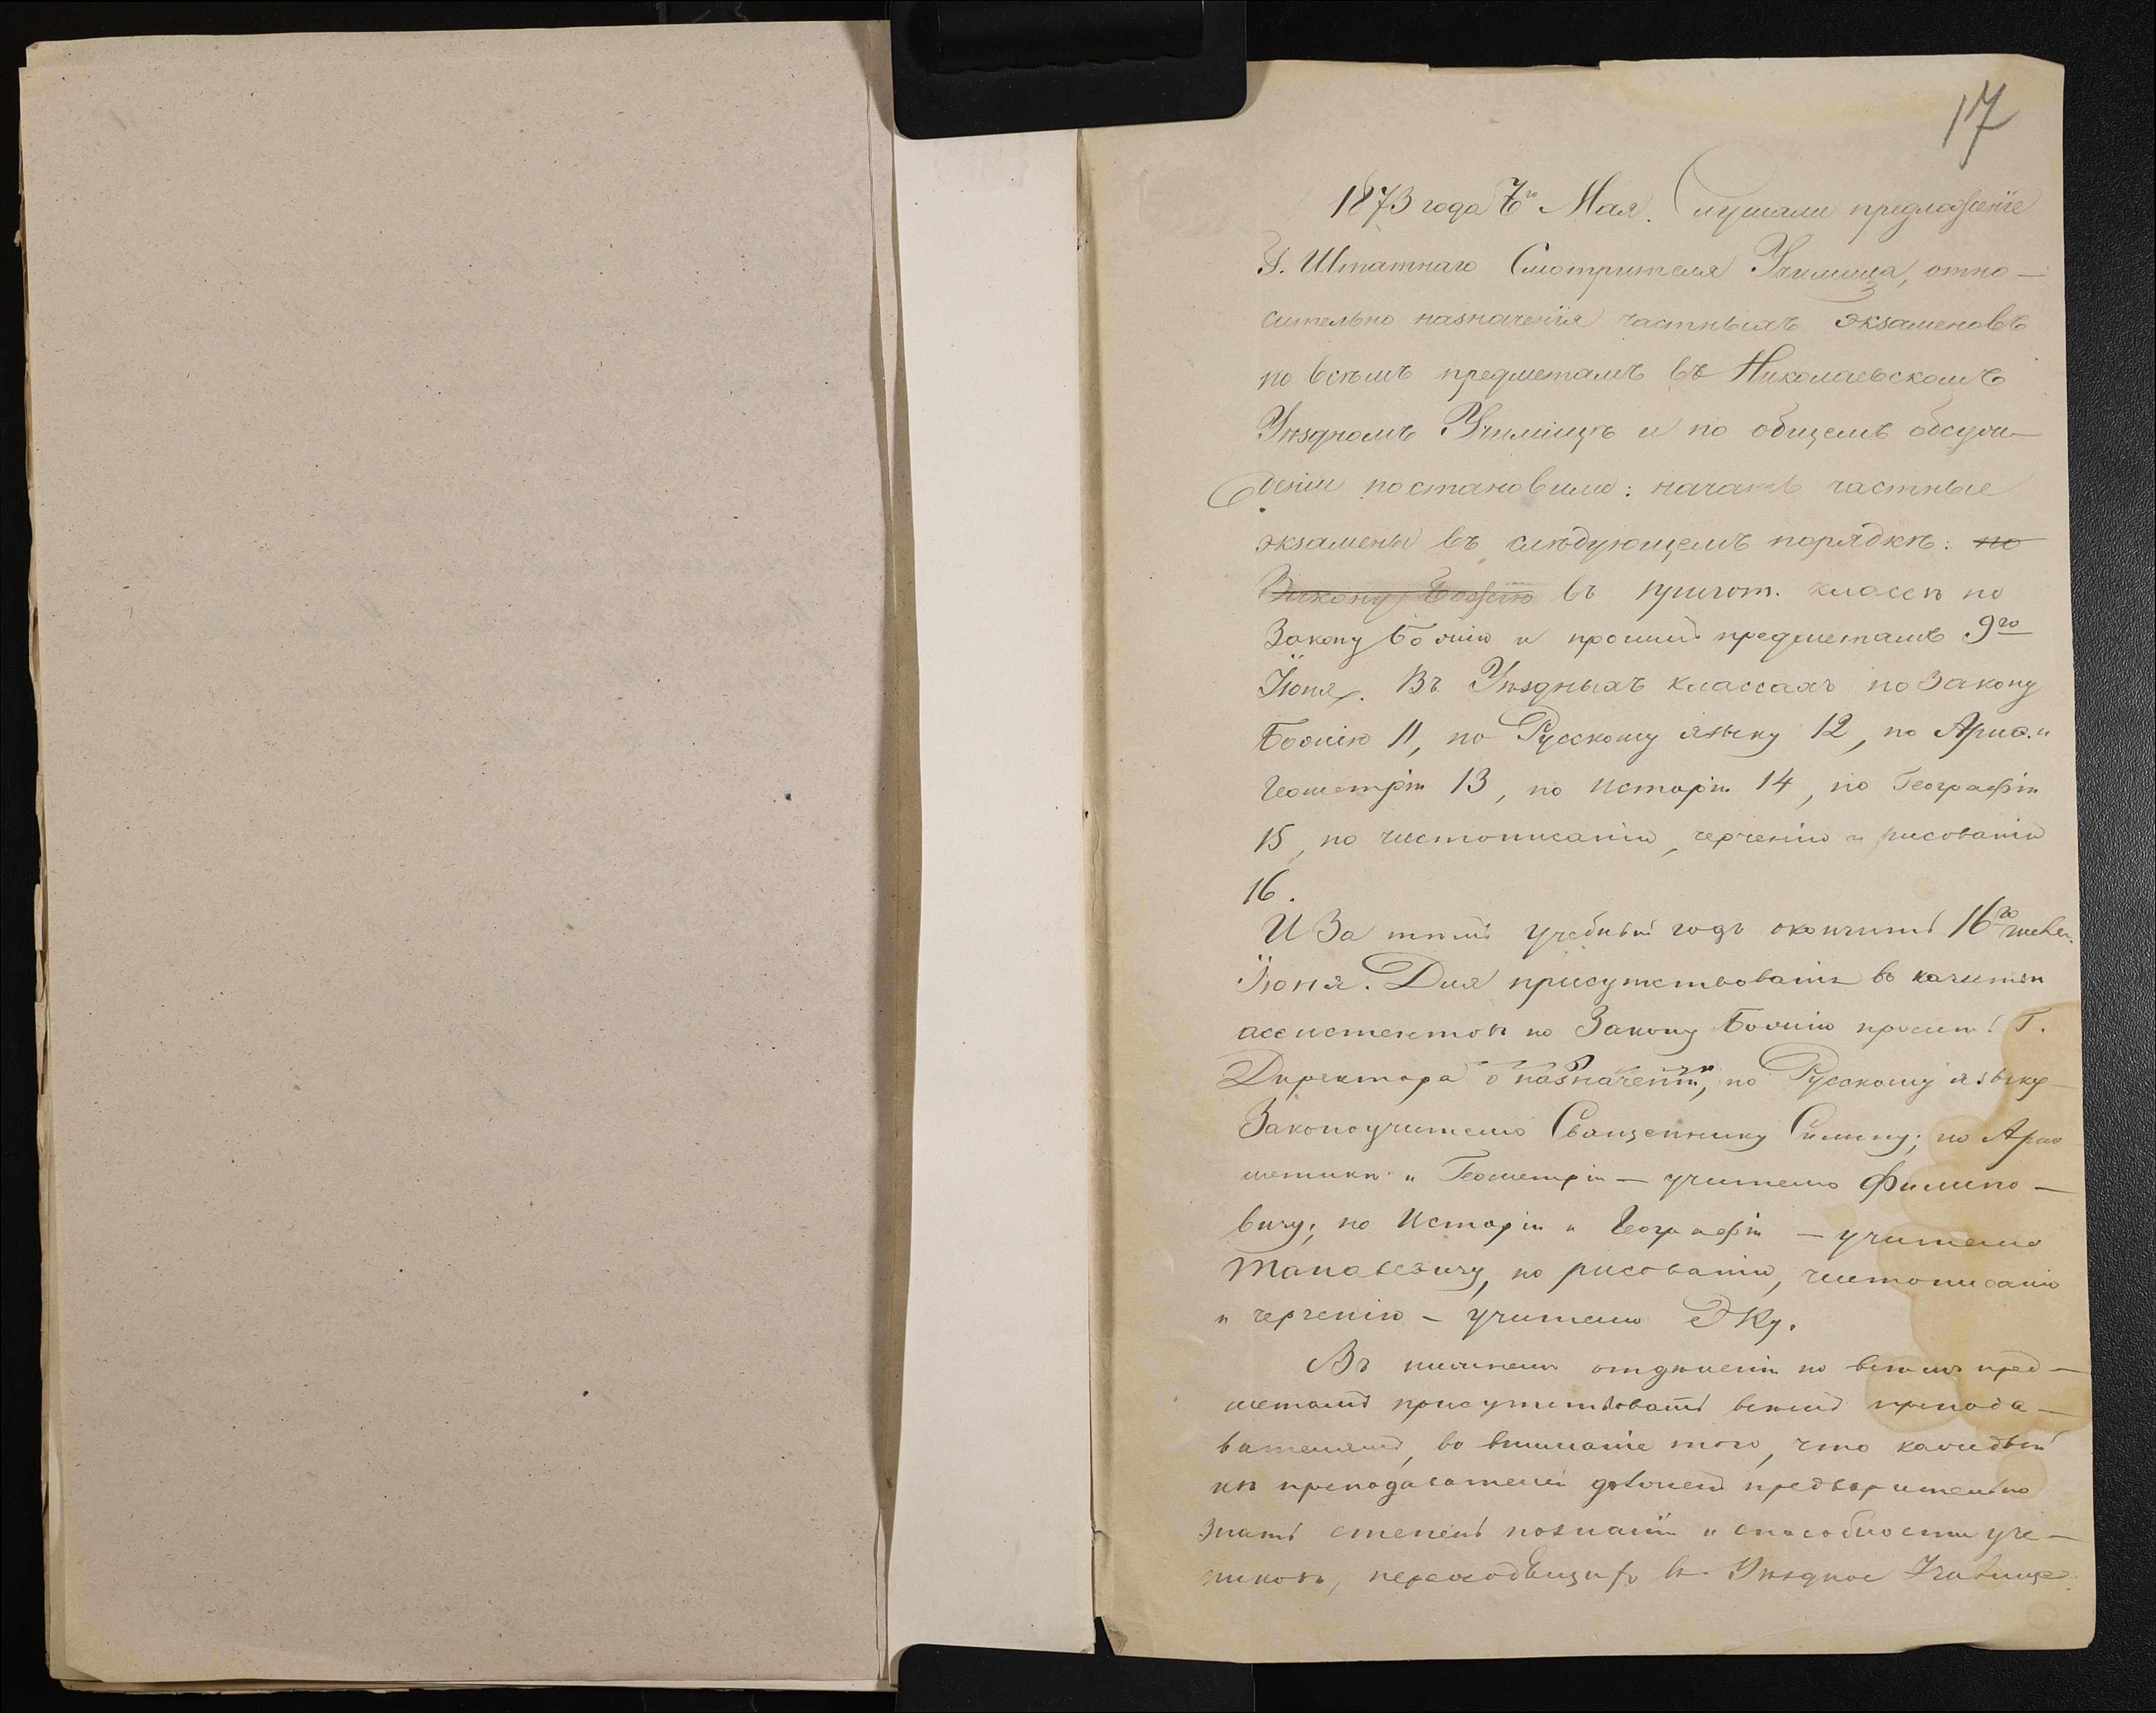 17
1873 года 7го Мая. Слушали предложенiе
Г. Штатнаго Смотрителя Училища, отно-
сительно назначенiя частныхъ экзаменовъ
по всѣмъ предметамъ въ Николаевскомъ
Уѣздномъ Училищѣ и по общемъ обсуж-
денiи постановили: начать частные
экзамены въ слѣдующемъ порядкѣ: по
Закону Божiю въ пригот. классѣ по
Закону Божiю и прочимъ предметамъ 9го
Iюня. Въ Уѣздныхъ классахъ по Закону
Божiю 11, по Русскому языку 12, по Ариѳ. и
Геометрiи 13, по Исторiи 14, по Географiи
15, по чистописанiю, черченiю и рисованiю
16.
И За тѣмъ учебный годъ окончить 16го
Iюня. Для присутствованiя въ качествѣ
ассистентовъ по Закону Божiю просить Г.
Директора о назначенiи, по Русскому языку
Законоучителю Священнику Силину; по Ариѳ
метикѣ и Геометрiи — учителю Филипо-
вичу; по Исторiи и Географiи — учителю
по рисованiю, чистописанiю
и черченiю — учителю Эку.
Въ низшемъ отдѣленiи по всѣмъ пред-
метамъ присутствовать всѣмъ препода-
вателямъ, во вниманiе того, что каждый
изъ преподавателей долженъ предварительно
знать степень познанiй и способности уче-
никовъ, переходящихъ въ Уѣздное Училище.